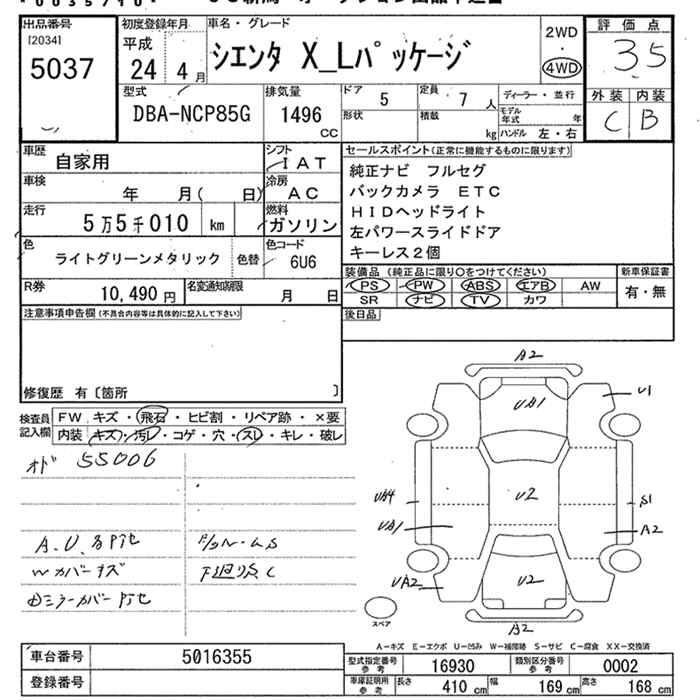 出品番号
[2034]
5037
初度登録年月
平成
24年 4月
車名・グレード
シエンタ X_Lパッケージ
2WD
・
4WD
評価点
3.5
外装 内装
C B
型式
DBA-NCP85G
排気量
1496
CC
ドア 5
定員 7 人
ディーラー・並行
形状
積載
kg
モデル年式 年
ハンドル 左・右
車歴
自家用
シフト
IAT
セールスポイント(正常に機能するものに限ります)
純正ナビ フルセグ
バックカメラ ETC
HIDヘッドライト
左パワースライドドア
キーレス2個
車検
年 月( 日)
冷房
AC
走行
5万5千010 km
燃料
ガソリン
色
ライトグリーンメタリック
色替
色コード
6U6
R券
10,490円
名変通知期限
月 日
装備品 (純正品に限り○をつけてください)
PS PW ABS エアB AW
SR ナビ TV カワ
新車保証書
有・無
注意事項申告欄(不具合内容等は具体的に記入して下さい)
後日品
修復歴 有〔箇所 〕
検査員記入欄
FW キズ・飛石・ヒビ割・リペア跡・×要
内装 キズ・汚レ・コゲ・穴・スレ・キレ・破レ
オド 55006
A.U.多門他
Wカバーキズ
ミラーカバー
A2
UA1
U1
U2
UA4
UA1
S1
A2
UA2
U2
A2
スペア
A-キズ E-エクボ U-凹み W-補修跡 S-サビ C-腐食 XX-交換済
車台番号
5016355
登録番号
型式指定番号
参考
16930
類別区分番号
参考
0002
車庫証明用
参考
長さ 410 cm
幅 169 cm
高さ 168 cm